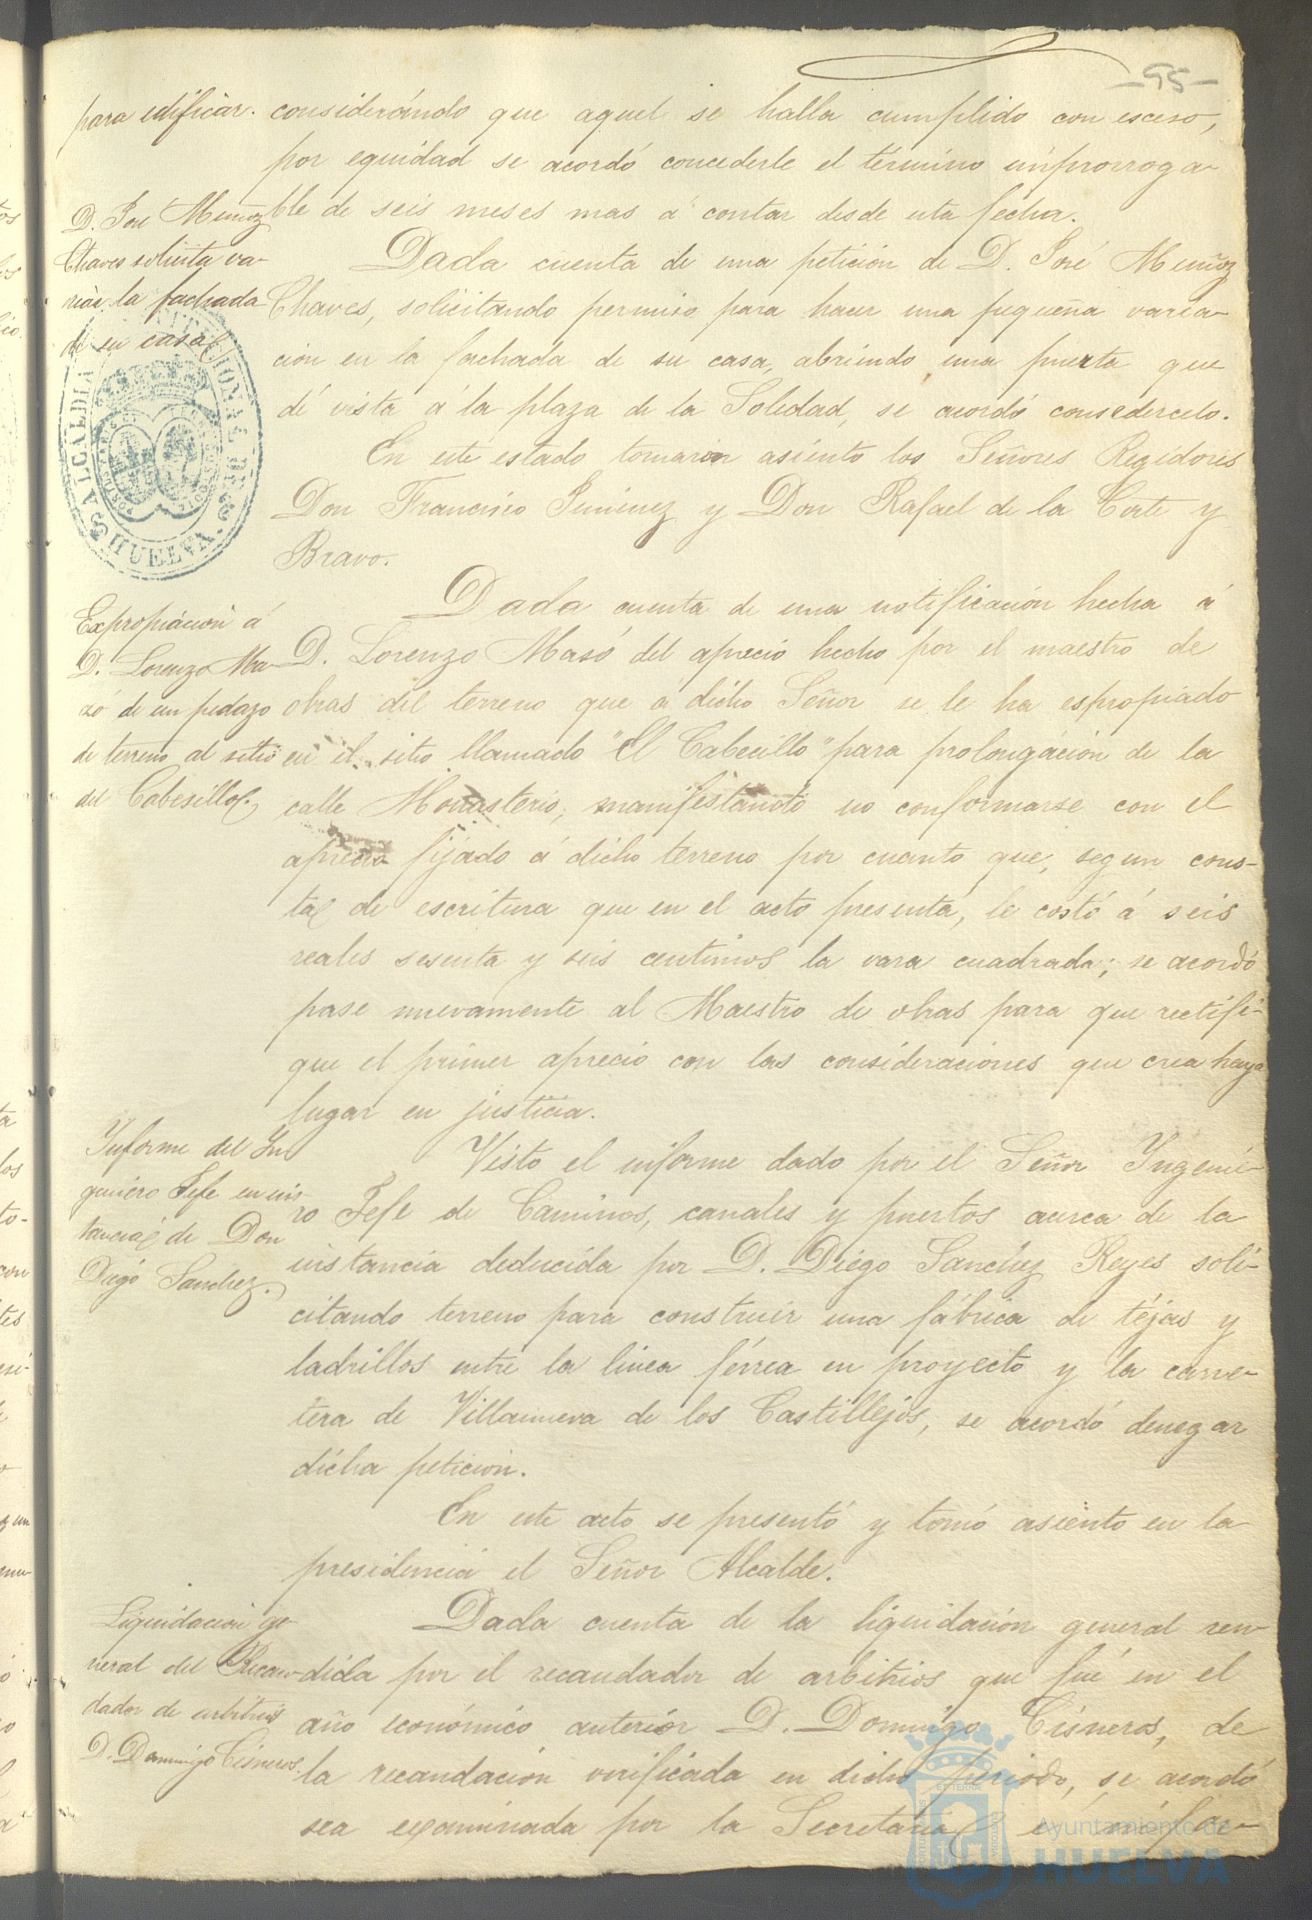 -95-
para edificar.
considerándo que aquel se halla cumplido con esceso,
por equidad se acordó concederle el término improrroga-
ble de seis meses mas á contar desde esta fecha.
D. José Muñoz
Chaves solicita va-
riár la fachada
de su casa
Dada cuenta de una petición de D. José Muñoz
Chaves, solicitando permiso para hacer una pequeña varia-
ción en la fachada de su casa, abriendo una puerta que
dé vista á la plaza de la Soledad, se acordó consedercelo.
ALCALDIA CONSTITUCIONAL DE
HUELVA
En este estado tomarón asiento los Señores Regidores
Don Francisco Jimenez y Don Rafael de la Corte y
Bravo.
Expropiación á
D. Lorenzo Ma-
zó de un pedazo
de terreno al sitio
del Cabesillo
Dada cuenta de una notificación hecha á
D. Lorenzo Masó del aprecio hecho por el maestro de
obras del terreno que á dicho Señor se le ha espropiado
en el sitio llamado "El Cabecillo" para prolongación de la
calle Monasterio, manifestándo no conformarse con el
aprecio fijado á dicho terreno por cuanto que, segun cons-
ta de escritura que en el acto presenta, le costó á seis
reales sesenta y seis centimos la vara cuadrada; se acordó
pase nuevamente al Maestro de obras para que rectifi-
que el primer aprecio con las consideraciones que crea haya
lugar en justicia.
Informe del In
geniero Jefe en ins-
tancia de Don
Diego Sanchez.
Visto el informe dado por el Señor Yngenié-
ro Jefe de Caminos, canales y puertos acerca de la
instancia deducida por D. Diego Sanchez Reyes soli-
citando terreno para construir una fábrica de téjas y
ladrillos entre la linea férrea en proyecto y la carre-
tera de Villanueva de los Castillejos, se acordó denegar
dicha peticion.
En este acto se presentó y tomó asiento en la
presidencia el Señor Alcalde.
Liquidación ge-
neral del Recau-
dador de arbitrios
D. Domingo Cisneros.
Dada cuenta de la liquidación general ren-
dida por el recaudador de arbitrios que fué en el
año económico anterior D. Domingo Cisneros, de
la recaudación verificada en dicho periodo, se acordó
sea examinada por la Secretaria
Ayuntamiento de
HUELVA